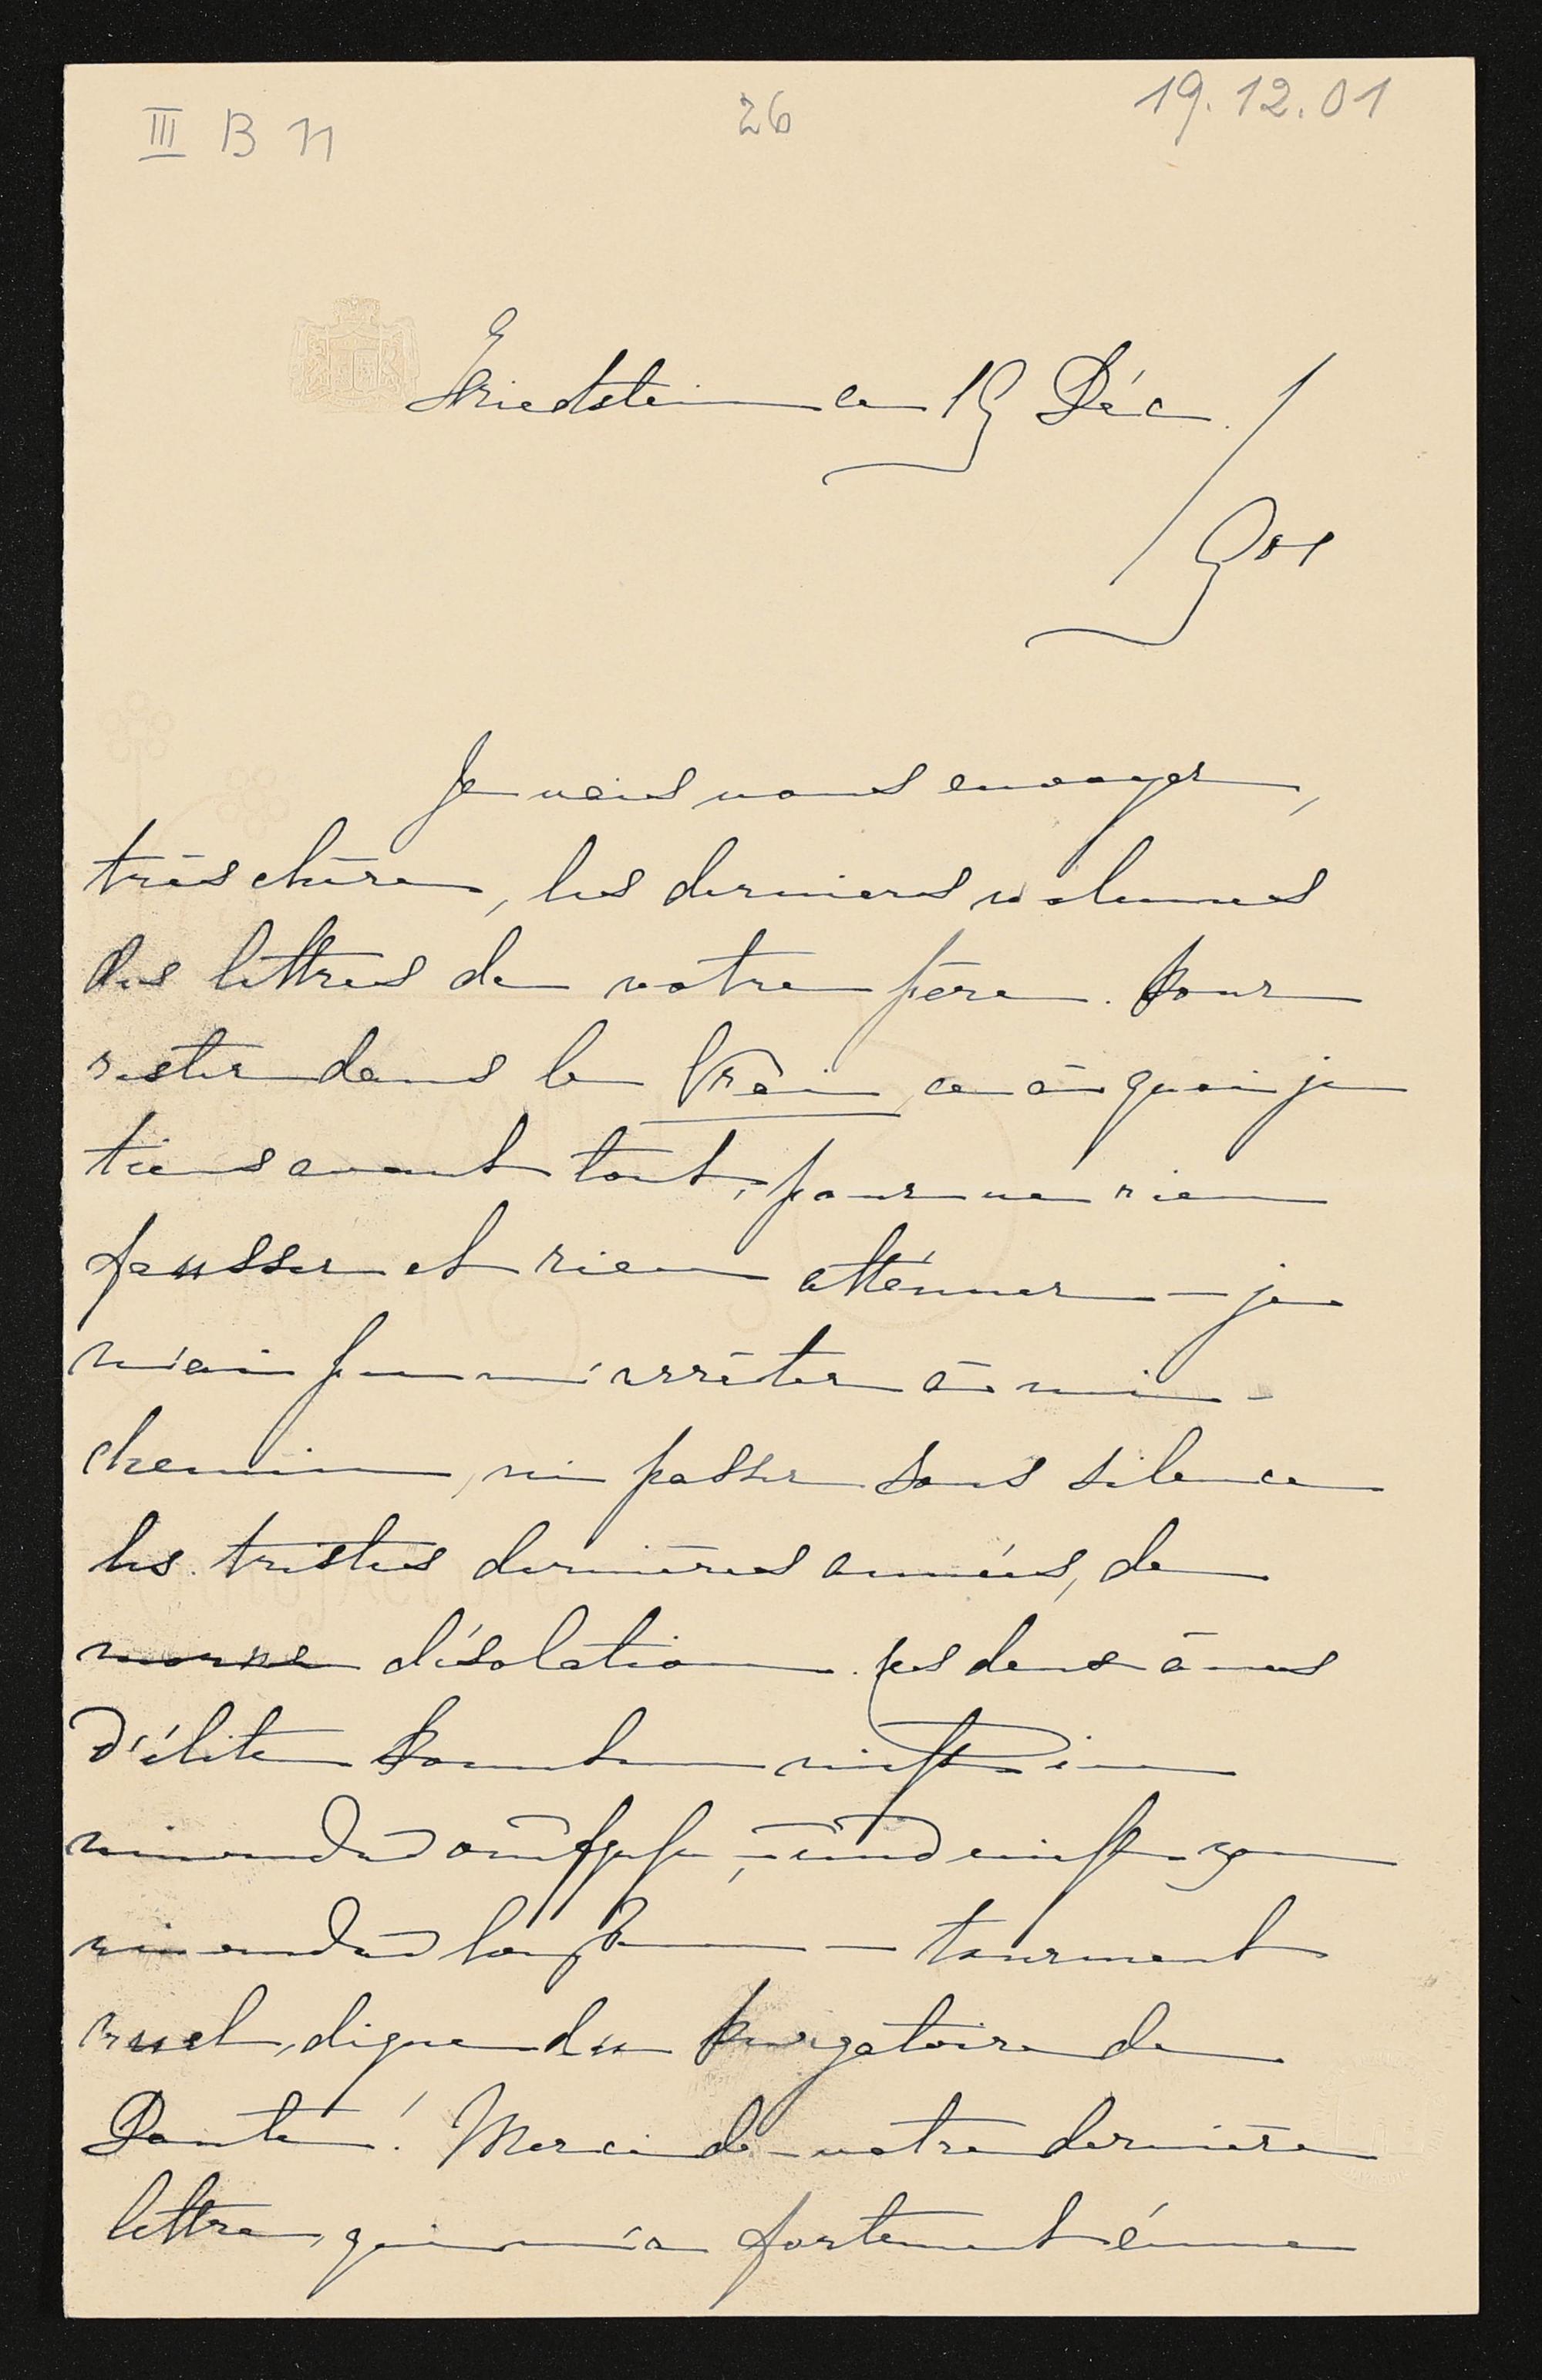 III B 11
26
19.12.01
Friedstein ce 19 Déc.
/901
Je vais vous envoyer,
très chère, les derniers volumes
des lettres de votre père. Pour
rester dans le Vrai, ce à quoi je
tiens avant tout, pour ne rien
fausser et rien atténuer – je
n'ai pu m'arrêter à mi-
chemin, ni passer sous silence
les tristes dernières années, de
morne désolation. Ces deux âmes
d'élite konnten nicht
einander und nicht von
einander lassen – tourment
cruel, digne du Purgatoire de
Dante! Merci de votre dernière
lettre, qui m'a fortement émue